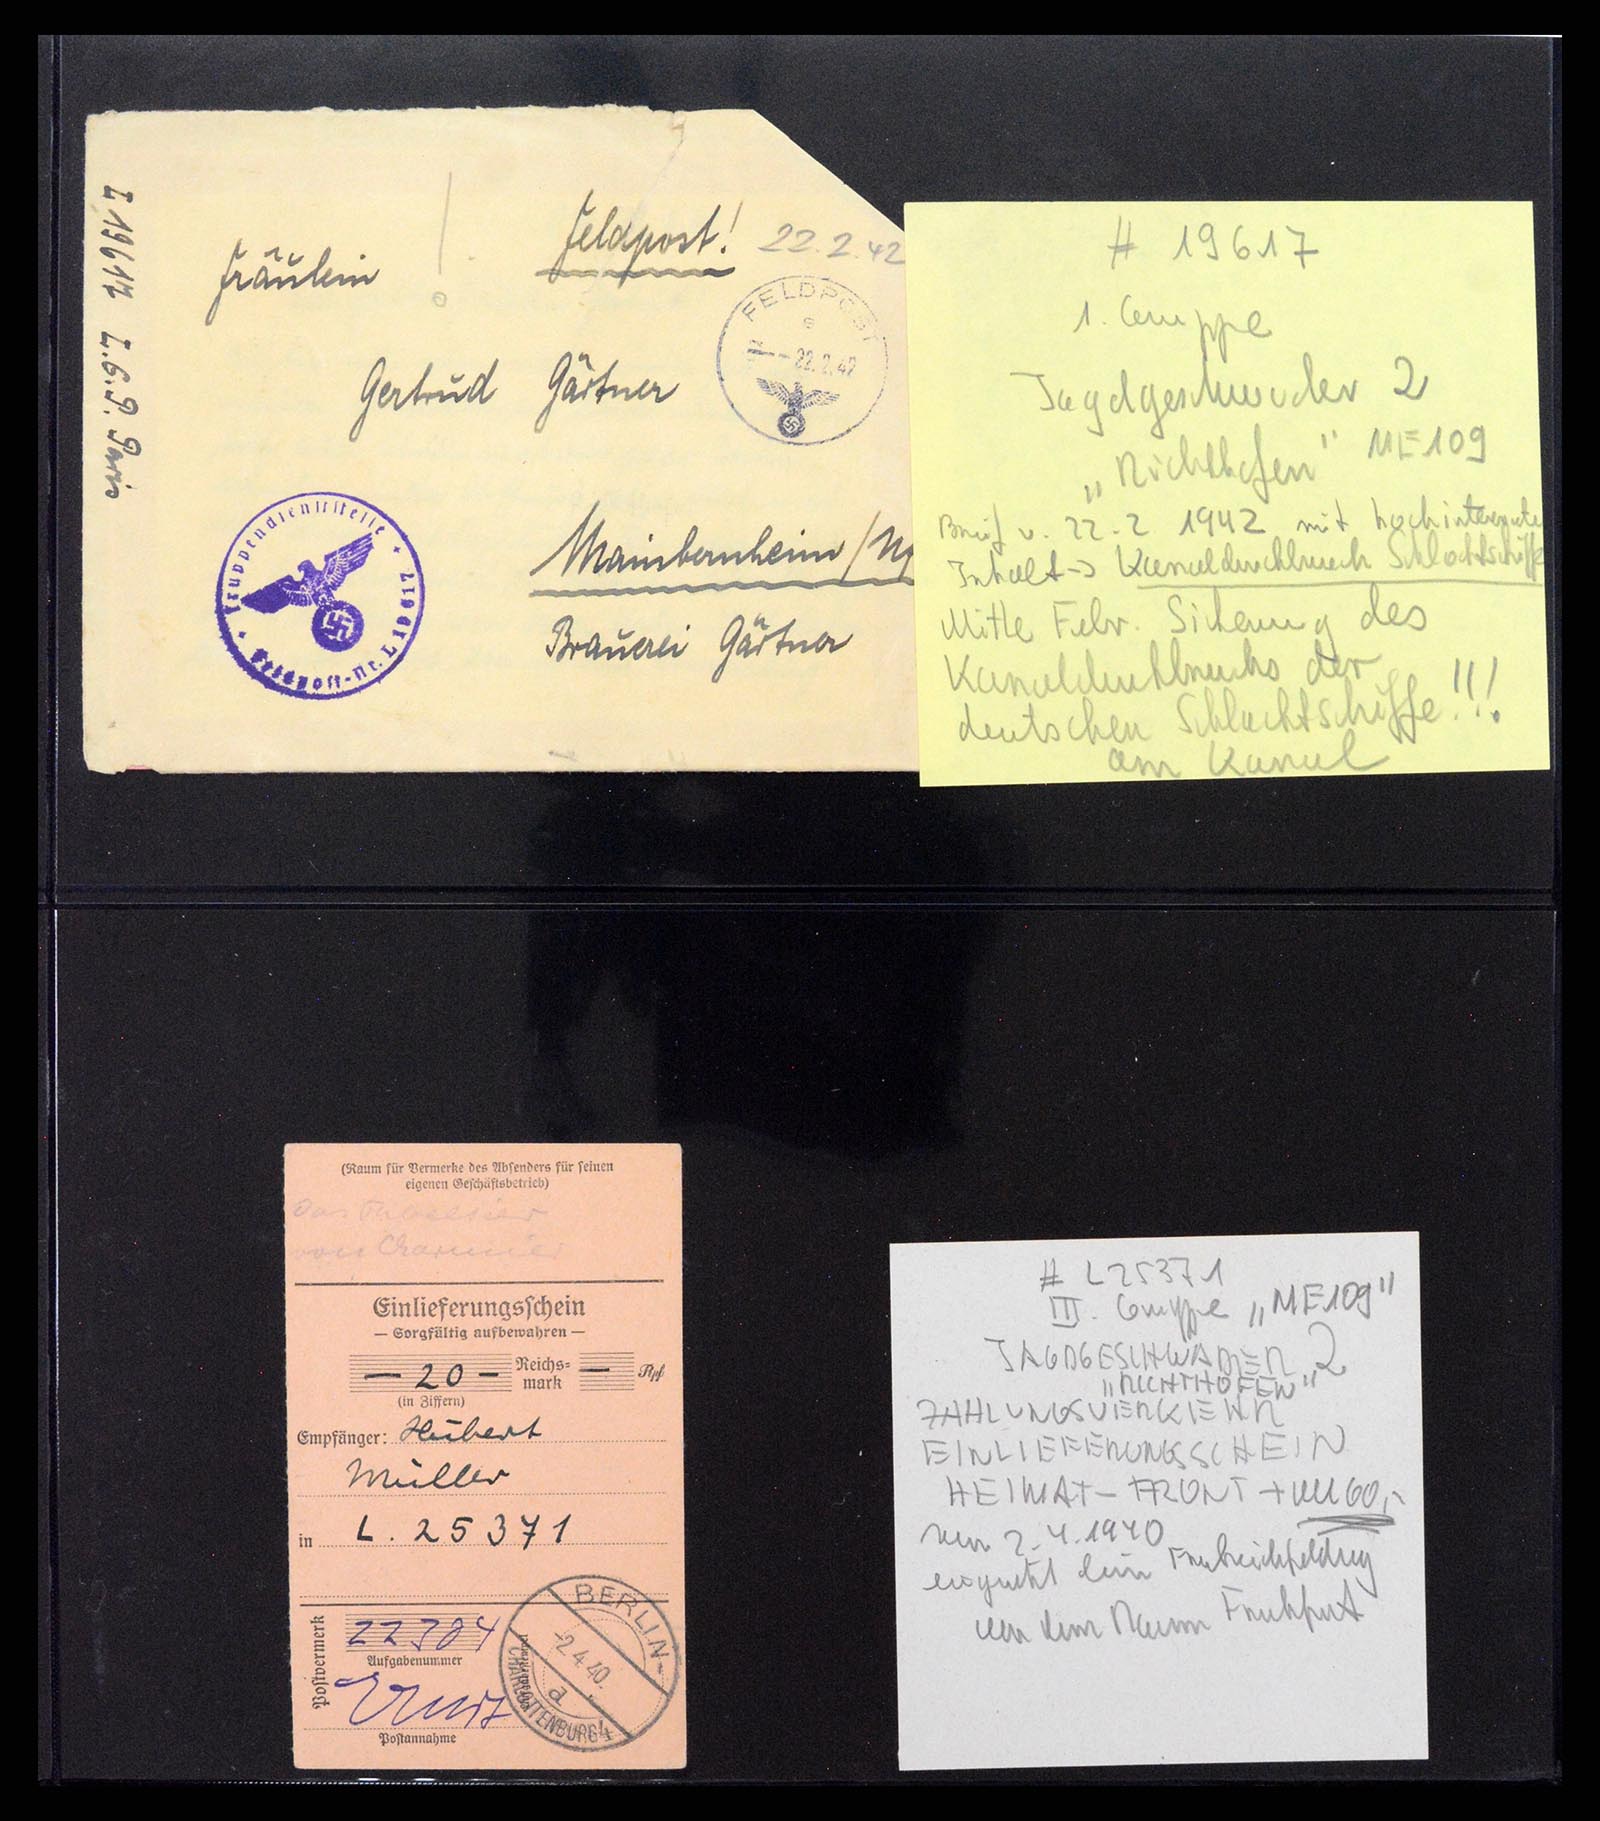 L 19617 L.G.P. Paris
Feldpost! 22.2.42
Fräulein
FELDPOST
e
22.2.42
Gertrud Gärtner
Truppendienststelle
Feldpost-Nr. L 19617
Mainbernheim /
Brauerei Gärtner
# 19617
1. Gruppe
Jagdgeschwader 2
„Richthofen“ ME 109
Brief v. 22.2 1942 mit hochinteressante
Inhalt → Kanaldurchbruch Schlachtschiffe
Mitte Febr. Sicherung des
Kanaldurchbruchs der
deutschen Schlachtschiffe!!!
am Kanal
(Raum für Vermerke des Absenders für seinen
eigenen Geschäftsbetrieb)
von
Einlieferungsschein
— Sorgfältig aufbewahren —
— 20 — Reichs-
mark — Rpf
(in Ziffern)
Empfänger: Hubert
Müller
in L. 25371
Postvermerk
22304
Aufgabenummer
Postannahme
BERLIN-
-2.4.40.
a
CHARLOTTENBURG 4
# L25371
III. Gruppe „ME109“
JAGDGESCHWADER 2
„RICHTHOFEN“
ZAHLUNGSVERKEHR
EINLIEFERUNGSSCHEIN
HEIMAT - FRONT + 60,-
2.4.1940
Frankreichfeldzug
dem Raum Frankfurt